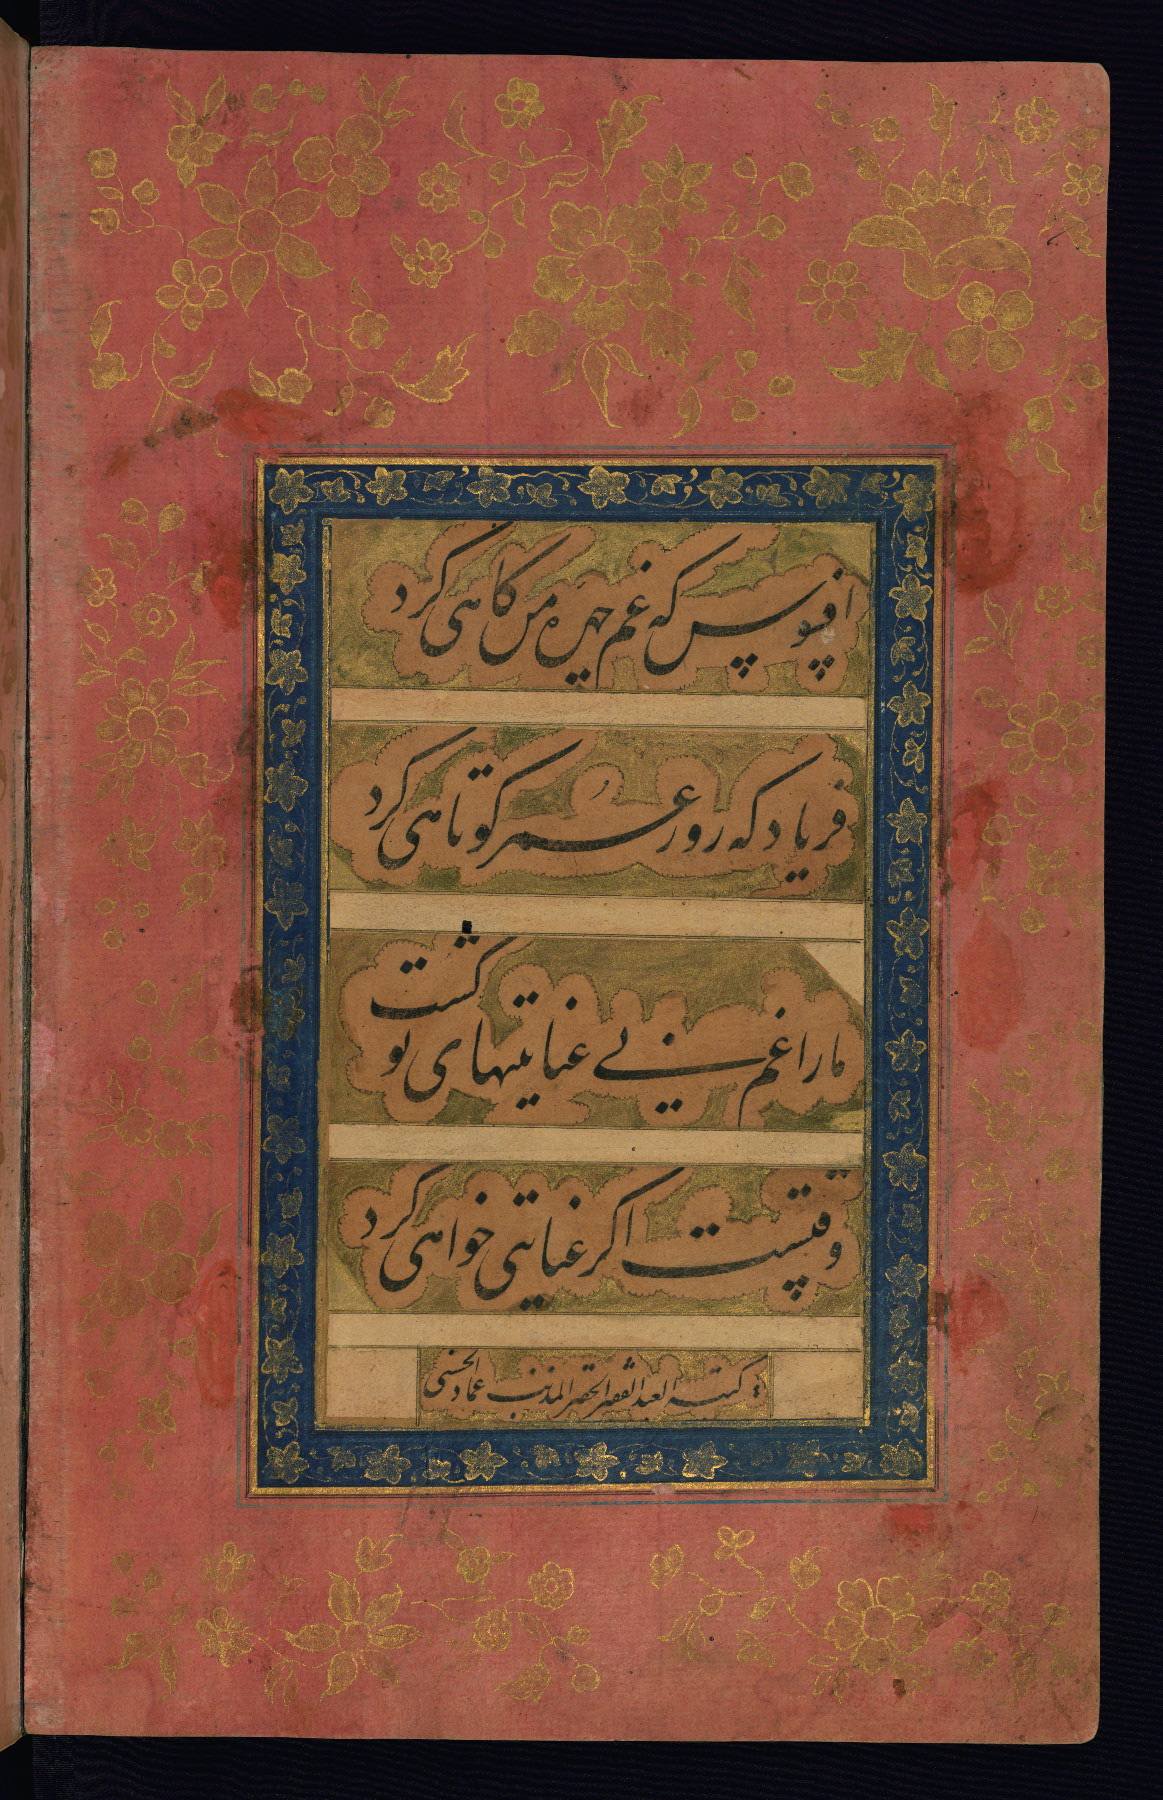 افسوس که غم چهره من کاهی کرد
فریاد که روز عمر کوتاهی کرد
ما را غم بی عنایتیهای تو کشت
وقتیست اگر عنایتی خواهی کرد
کتبه العبد الفقیر الحقیر المذنب عماد الحسنی